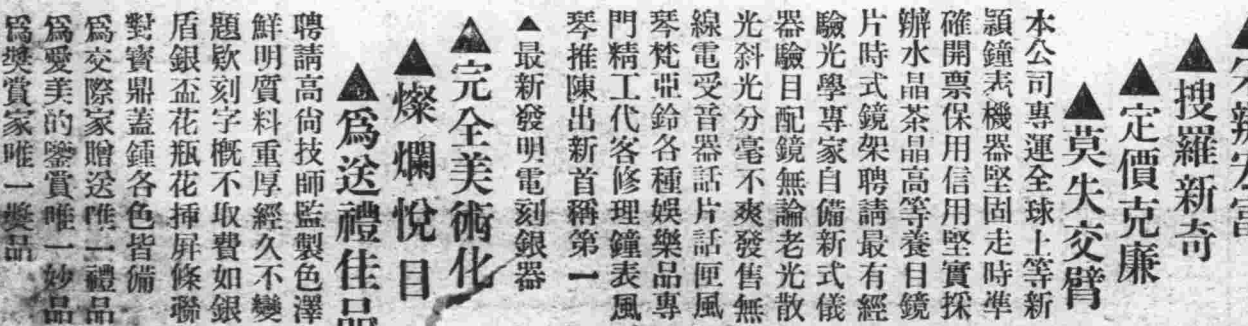 宏富
▲搜羅新奇
▲定價克廉
▲莫失交臂
本公司專運全球上等新
穎鐘表機器堅固走時準
確開票保用信用堅實採
辦水晶茶晶高等養目鏡
片時式鏡架聘請最有經
驗光學專家自備新式儀
器驗目配鏡無論老光散
光斜光分毫不爽發售無
線電受音器話片話匣風
琴梵亞鈴各種娛樂品專
門精工代客修理鐘表風
琴推陳出新首稱第一
▲最新發明電刻銀器
▲完全美術化
▲燦爛悅目
▲爲送禮佳品
聘請高尙技師監製色澤
鮮明質料重厚經久不變
題欵刻字概不取費如銀
盾銀盃花瓶花揷屏條聯
對寶鼎蓋鍾各色皆備
爲交際家贈送唯一禮品
爲愛美的鑒賞唯一妙品
爲獎賞家唯一獎品